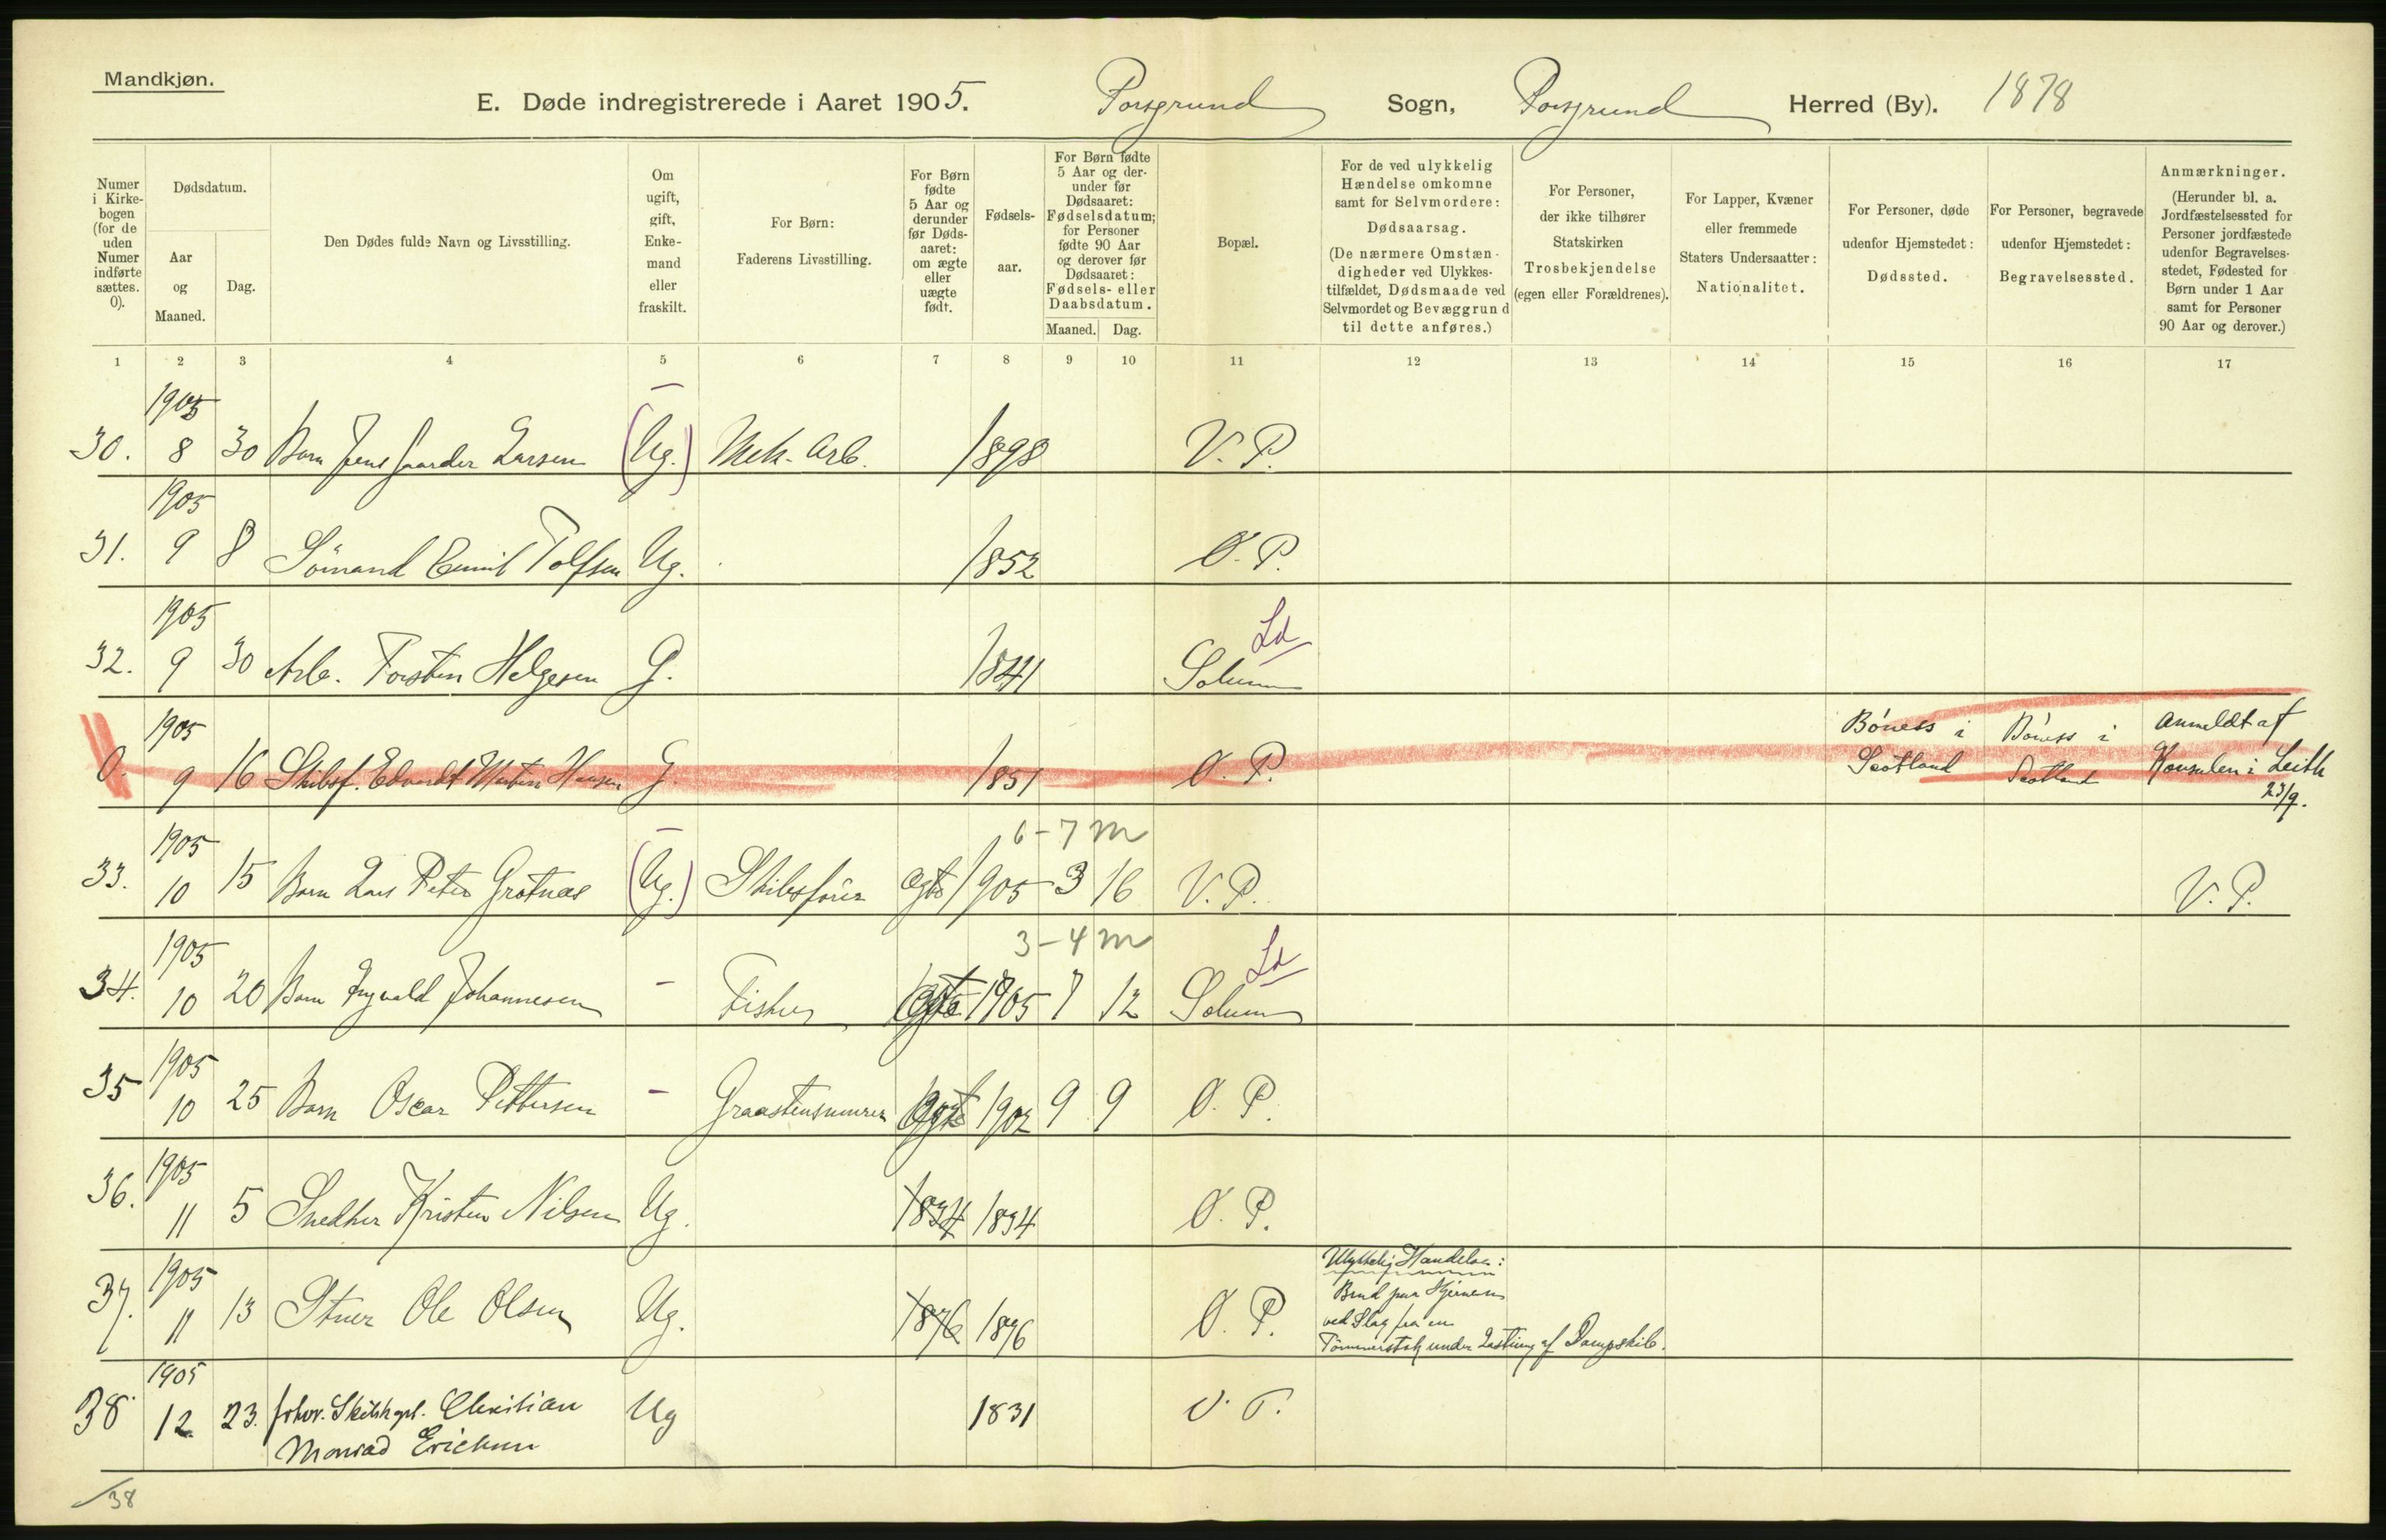 Mandkjøn.
E. Døde indregistrerede i Aaret 1905. Porsgrund Sogn, Porsgrund Herred (By). 1878
Numer
i Kirke-
bogen
(for de
uden
Numer
indførte
sættes.
0).
Dødsdatum.
Aar
og
Maaned.
Dag.
Den Dødes fulde Navn og Livsstilling.
Om
ugift,
gift,
Enke-
mand
eller
fraskilt.
For Børn:
Faderens Livsstilling.
For Børn
fødte
5 Aar og
derunder
før Døds-
aaret:
om ægte
eller
uægte
født.
Fødsels-
aar.
For Børn fødte
5 Aar og der-
under før
Dødsaaret:
Fødselsdatum;
for Personer
fødte 90 Aar
og derover før
Dødsaaret:
Fødsels- eller
Daabsdatum.
Maaned. Dag.
Bopæl.
For de ved ulykkelig
Hændelse omkomne
samt for Selvmordere:
Dødsaarsag.
(De nærmere Omstæn-
digheder ved Ulykkes-
tilfældet, Dødsmaade ved
Selvmordet og Bevæggrund
til dette anføres.)
For Personer,
der ikke tilhører
Statskirken
Trosbekjendelse
(egen eller Forældrenes).
For Lapper, Kvæner
eller fremmede
Staters Undersaatter:
Nationalitet.
For Personer, døde
udenfor Hjemstedet:
Dødssted.
For Personer, begravede
udenfor Hjemstedet:
Begravelsessted.
Anmærkninger.
(Herunder bl. a.
Jordfæstelsessted for
Personer jordfæstede
udenfor Begravelses-
stedet, Fødested for
Børn under 1 Aar
samt for Personer
90 Aar og derover.)
1 2 3 4 5 6 7 8 9 10 11 12 13 14 15 16 17
1905
30. 8 30 Barn Jens Larsen (Ug.) Mek. Arb. 1898 V. P.
1905
31. 9 8 Sömand Emil Tolfsen Ug. 1852 Ø. P.
1905 Ld
32. 9 30 Arb. Torsten Helgesen G. 1841 Solum
1905 Böness i Böness i Anmeldt af
0. 9 16 Skibsf. Edvardt Martin Hansen G. 1851 Ø. P. Scotland Scotland Konsulen i Leith
23/9.
1905 6-7 m
33. 10 15 Barn Lars Peter Grotnæs (Ug.) Skibsförer ægte 1905 3 16 V. P. V. P.
1905 3-4 m Ld
34. 10 20 Barn Ingvald Johannesen - Fisker ægte 1905 7 12 Solum
1905
35 10 25 Barn Oscar Pettersen - Graastensmurer ægte 1902 9 9 Ø. P.
1905
36. 11 5 Snedker Kristen Nilsen Ug. 1834 1834 Ø. P.
1905 Ulykkelig Hændelse:
37. 11 13 Stuer Ole Olsen Ug. 1876 1876 Ø. P. Brud paa Hjernen
ved Slag fra en
Tömmerstok under Lastning af Dampskib.
1905
38 12 23. Christian Ug 1831 V. P.
Monrad Ericksen
/38